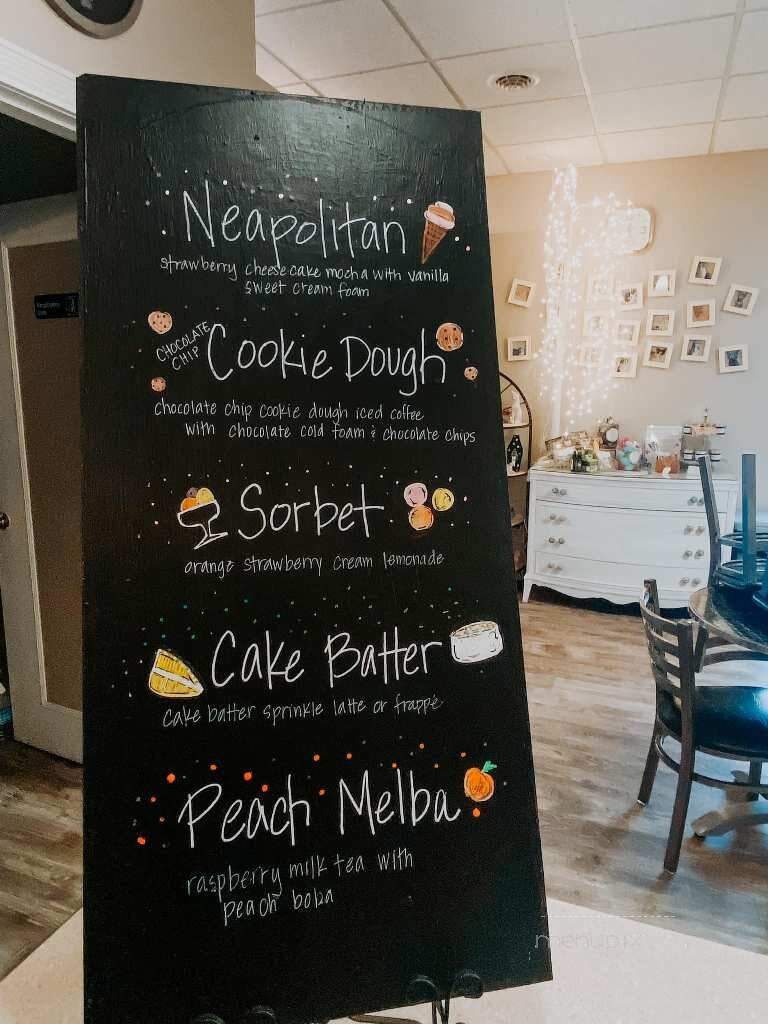 Neapolitan
strawberry cheesecake mocha with vanilla
sweet cream foam
CHOCOLATE
CHIP
Cookie Dough
chocolate chip cookie dough iced coffee
with chocolate cold foam & chocolate chips
Sorbet
orange strawberry cream lemonade
Cake Batter
cake batter sprinkle latte or frappé
Peach Melba
raspberry milk tea with
peach boba
menupix